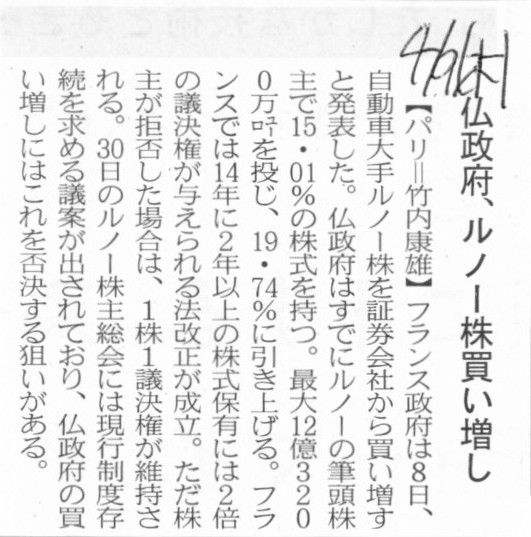 4/9(木)
仏政府、ルノー株買い増し
【パリ＝竹内康雄】フランス政府は8日、
自動車大手ルノー株を証券会社から買い増す
と発表した。仏政府はすでにルノーの筆頭株
主で15・01％の株式を持つ。最大12億320
0万㌆を投じ、19・74％に引き上げる。フラ
ンスでは14年に2年以上の株式保有には2倍
の議決権が与えられる法改正が成立。ただ株
主が拒否した場合は、1株1議決権が維持さ
れる。30日のルノー株主総会には現行制度存
続を求める議案が出されており、仏政府の買
い増しにはこれを否決する狙いがある。